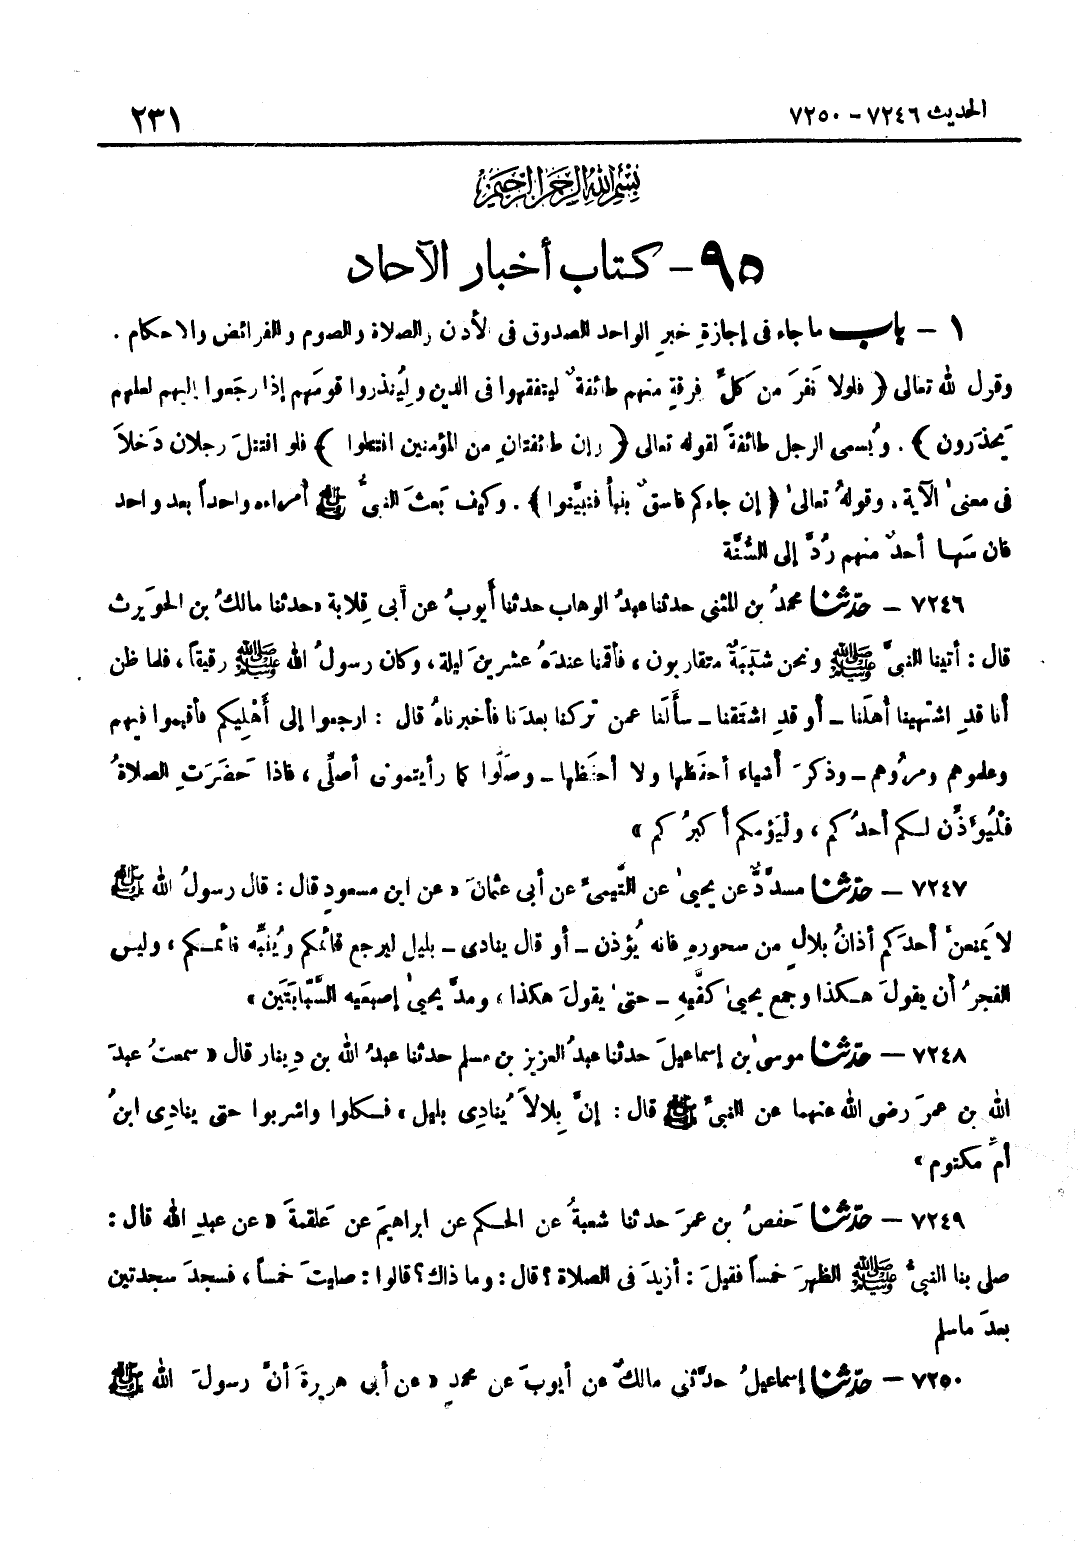 الحديث ٧٢٤٦ - ٧٢٥٠ ٢٣١
بسم الله الرحمن الرحيم
٩٥ - كتاب أخبار الآحاد
١ - باب ما جاء فى إجازةِ خبرِ الواحد الصدوق فى الأذن والصلاة والصوم والفرائض والاحكام .
وقول لله تعالى ﴿ فلولا نَفرَ من كلِّ فرقةٍ منهم طائفةٌ ليتفقهوا فى الدين ولِيُنذروا قومَهم إذا رجَعوا إليهم لعلهم
يَحذَرون ﴾ . ويُسمى الرجل طائفةً لقوله تعالى ﴿ وإن طائفتانِ من المؤمنين اقتتلوا ﴾ فلو اقتتلَ رجلان دَخلاَ
فى معنىٰ الآية . وقولهُ تعالىٰ ﴿ إن جاءكم فاسقٌ بنبأ فتبيَّنوا ﴾ . وكيف بَعثَ النبىُّ ﷺ أُمراءه واحداً بعد واحد
فان سَها أحدٌ منهم رُدَّ إلى السُّنَّة
٧٢٤٦ - حدّثنا محمدُ بن المثنى حدثنا عبدُ الوهاب حدثنا أيوبُ عن أبى قِلابة «حدثنا مالكُ بن الحوَيرث
قال : أتينا النبىَّ ﷺ ونحن شَبَبَةٌ متقاربون ، فأقمنا عندَهُ عشرينَ ليلة ، وكان رسولُ الله ﷺ رقيقاً ، فلما ظن
أنا قدِ اشتهينا أهلَنا - أو قدِ اشتَقنا - سأَلَنا عمن تركنا بعدَنا فأخبرناهُ قال : ارجعوا إلى أَهْلِيكم فأقيموا فيهم
وعلموهم ومرُوهم - وذكرَ أشياء أحفَظها ولا أحفَظها - وصَلُّوا كما رأيتمونى أصلِّى ، فاذا حَضَرَتِ الصلاةُ
فلْيُؤَذِّن لكم أحدُكم ، ولْيَؤمكم أكبرُكم »
٧٢٤٧ - حدّثنا مسدَّدٌ عن يحيىٰ عن التَّيمىِّ عن أبى عثمانَ « عن ابن مسعودٍ قال : قال رسولُ الله ﷺ
لا يَمنعنَّ أحدَكم أذانُ بلالٍ من سحورهِ فانه يُؤذن - أو قال ينادى - بليل ليرجع قائمكم ويُنبِّه نائمكم ، وليس
الفجرُ أن يقولَ هكذا وجمع يحيىٰ كفَّيهِ - حتىٰ يقولَ هكذا ، ومدَّ يحيىٰ إصبعَيه السَّبّابَتَين »
٧٢٤٨ - حدّثنا موسىٰ بن إسماعيلَ حدثنا عبدُ العزيز بن مسلم حدثنا عبدُ الله بن دِينار قال « سمعتُ عبدَ
الله بن عمرَ رضى الله عنهما عن النبىِّ ﷺ قال : إنَّ بِلالاً يُنادِى بليل ، فكلوا واشربوا حتى ينادِى ابنُ
أمِّ مكتوم »
٧٢٤٩ - حدّثنا حَفصُ بن عمرَ حدثنا شعبةُ عن الحكم عن ابراهيمَ عن عَلقمةَ « عن عبدِ الله قال :
صلى بنا النبىُّ ﷺ الظهرَ خمساً فقيلَ : أزيدَ فى الصلاة ؟ قال : وما ذاك ؟ قالوا : صليتَ خمساً ، فسجدَ سجدتين
بعدَ ما سلم
٧٢٥٠ - حدّثنا إسماعيلُ حدَّثنى مالكٌ عن أيوبَ عن محمدٍ « عن أبى هريرةَ أنَّ رسولَ الله ﷺ